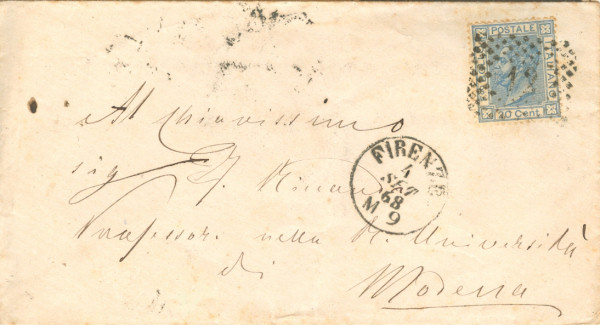 POSTALE
ITALIANO
20 Cent.
Al Chiarissimo
sig.
FIRENZE
4
SET
68
M 9
Professore nella R. Università
di
Modena